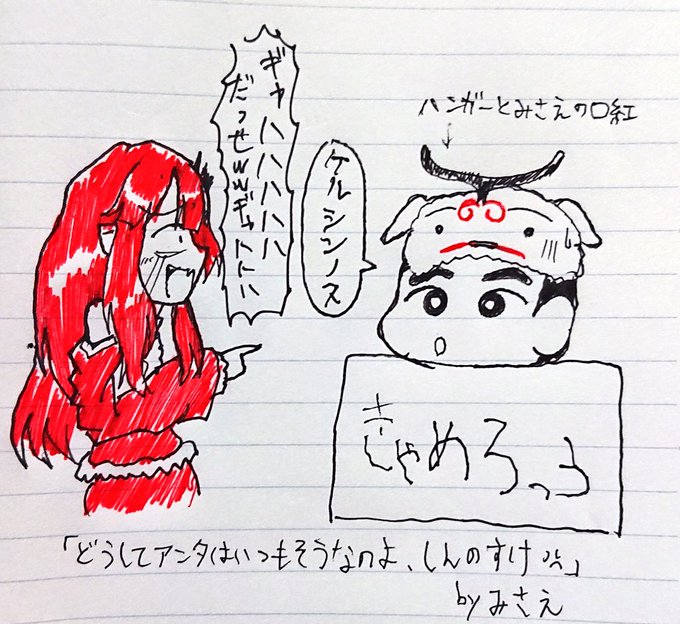 ギャハハハハハハ
だっせwwギャハハハ
ケルシンノス
ハンガーとみさえの口紅
↓
きゃめろっと
「どうしてアンタはいつもそうなのよ、しんのすけ💢」
by みさえ